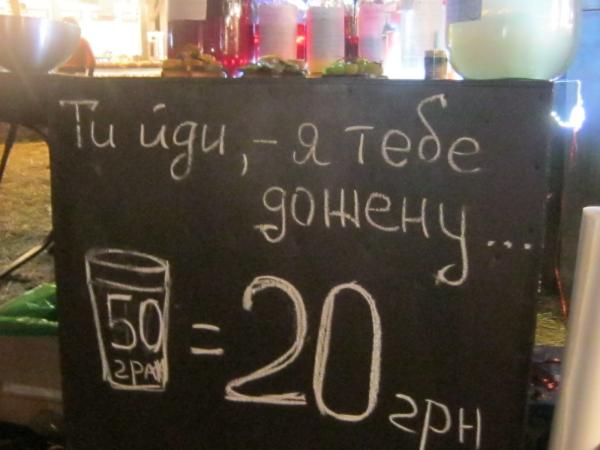 Ти йди, - я тебе
дожену...
50 = 20 грн
грам